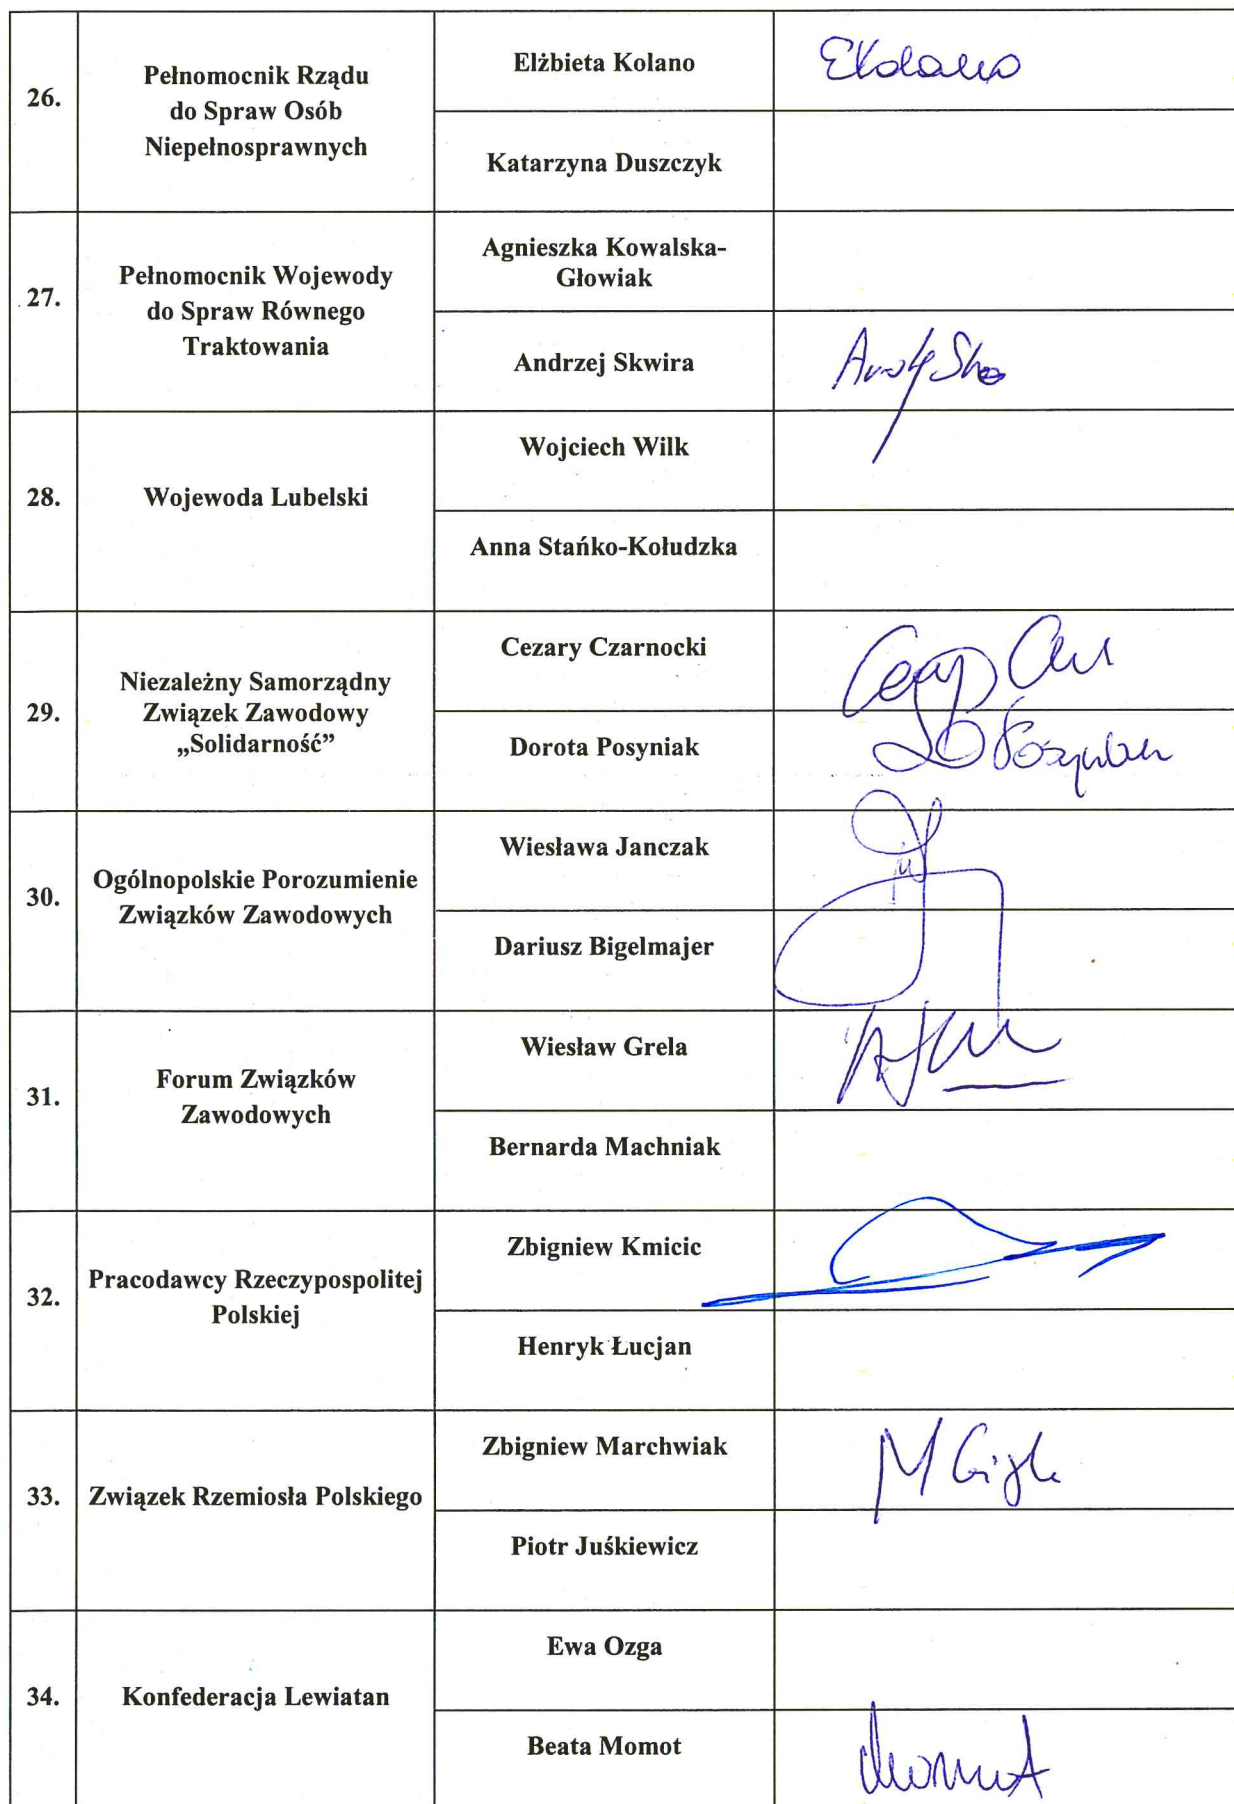 26.
Pełnomocnik Rządu
do Spraw Osób
Niepełnosprawnych
Elżbieta Kolano
EKolano
Katarzyna Duszczyk
27.
Pełnomocnik Wojewody
do Spraw Równego
Traktowania
Agnieszka Kowalska-
Głowiak
Andrzej Skwira
28.
Wojewoda Lubelski
Wojciech Wilk
Anna Stańko-Kołudzka
29.
Niezależny Samorządny
Związek Zawodowy
„Solidarność”
Cezary Czarnocki
Dorota Posyniak
30.
Ogólnopolskie Porozumienie
Związków Zawodowych
Wiesława Janczak
Dariusz Bigelmajer
31.
Forum Związków
Zawodowych
Wiesław Grela
Bernarda Machniak
32.
Pracodawcy Rzeczypospolitej
Polskiej
Zbigniew Kmicic
Henryk Łucjan
33.
Związek Rzemiosła Polskiego
Zbigniew Marchwiak
Piotr Juśkiewicz
34.
Konfederacja Lewiatan
Ewa Ozga
Beata Momot